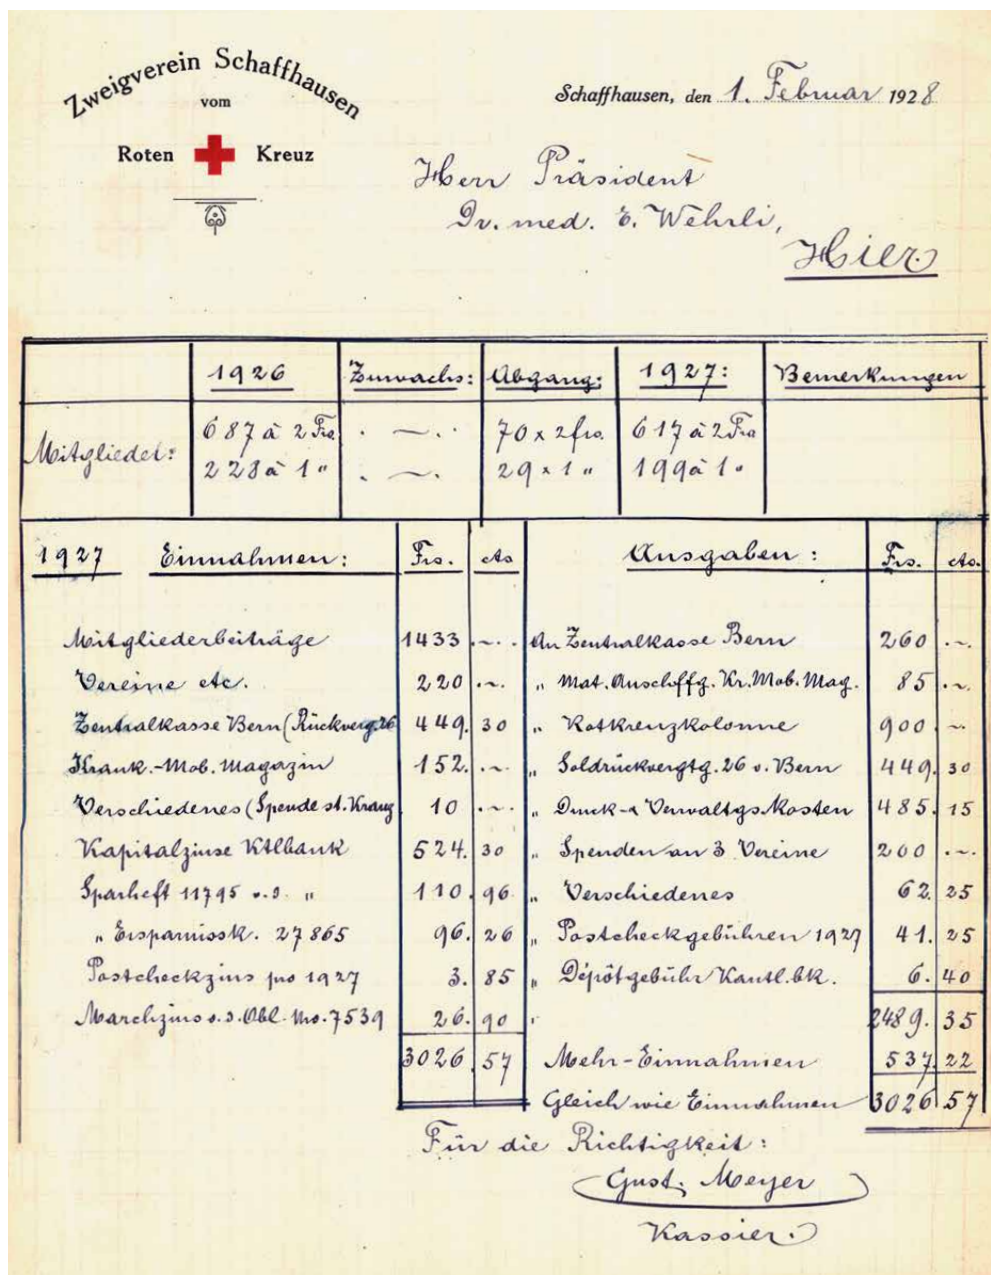 Zweigverein Schaffhausen
vom
Roten Kreuz
Schaffhausen, den 1. Februar 1928
Herr Präsident
Dr. med. E. Wehrli,
Hier.
1926 Zuwachs: Abgang: 1927: Bemerkungen
Mitglieder:
687 à 2 Frs. . —. . 70 x 2 frs. 617 à 2 Frs
228 à 1 " . —. 29 x 1 " 199 à 1 "
1927 Einnahmen: Frs. cts Ausgaben: Frs. cts.
Mitgliederbeiträge 1433 .—. An Zentralkasse Bern 260 .—.
Vereine etc. 220 .—. " Mat. Anschffg. Kr. Mob. Mag. 85 .—.
Zentralkasse Bern (Rückverg. 26 449. 30 " Rotkreuzkolonne 900 .—
Krank.-Mob. Magazin 152. .—. " Soldrückvergtg. 26 v. Bern 449. 30
Verschiedenes (Spende st. Kranz 10 .—. " Druck- & Verwaltgs Kosten 485. 15
Kapitalzinse Ktlbank 524. 30 " Spenden an 3 Vereine 200 .—.
Sparheft 11795 v. d. " 110. 96 " Verschiedenes 62. 25
" Ersparnissk. 27865 96. 26 " Postcheckgebühren 1927 41. 25
Postcheckzins pro 1927 3. 85 " Dépôtgebühr Kantl. bk. 6. 40
Marchzins v. d. Obl. No. 7539 26. 90 " 2489. 35
3026. 57 Mehr-Einnahmen 537. 22
Gleich wie Einnahmen 3026. 57
Für die Richtigkeit:
Gust. Meyer
Kassier.